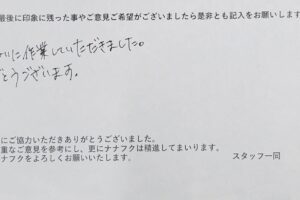 最後に印象に残った事やご意見ご希望がございましたら是非とも記入をお願いします
いに作業していただきました。
とうございます。
にご協力いただきありがとうございました。
重なご意見を参考にし、更にナナフクは精進してまいります。
ナナフクをよろしくお願いいたします。
スタッフ一同